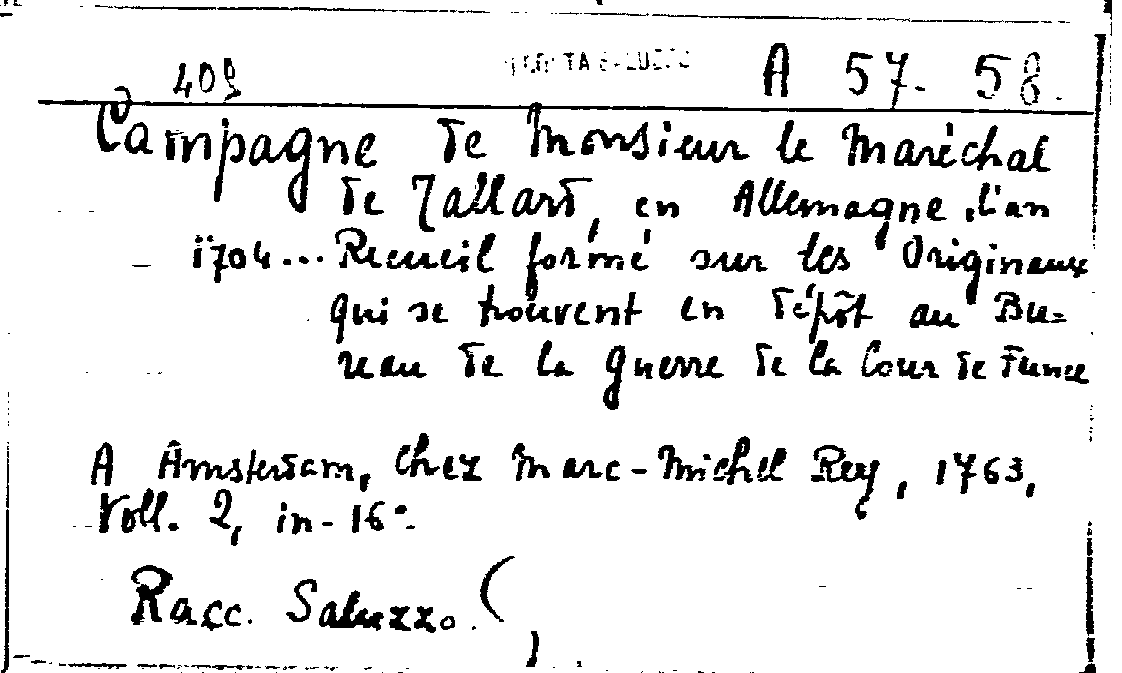 409 A 57-58.
Campagne de Monsieur le Maréchal
de Tallard, en Allemagne, l'an
1704... Recueil formé sur les Originaux
qui se trouvent en dépôt au Bu=
reau de la Guerre de la Cour de France
A Amsterdam, chez Marc-Michel Rey, 1763,
Voll. 2, in-16°.
Racc. Saluzzo.